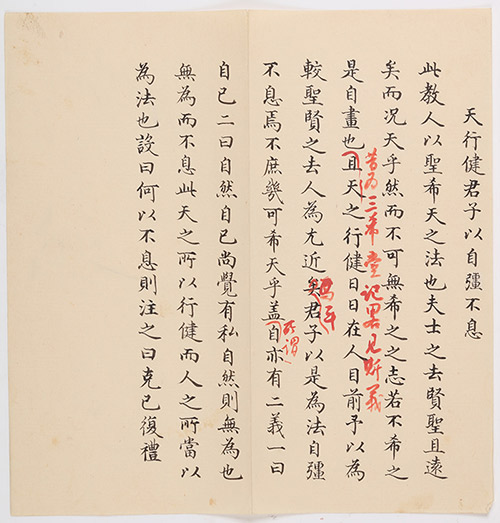 天行健君子以自彊不息
此教人以聖希天之法也夫士之去賢聖且遠
矣而况天乎然而不可無希之之志若不希之
昔為三希堂記畧見斯義
是自畫也且天之行健日日在人目前予以為
較聖賢之去人為尤近矣君子以是為法自彊
所謂
不息焉不庶幾可希天乎盖自亦有二義一曰
自已二曰自然自已尚覺有私自然則無為也
無為而不息此天之所以行健而人之所當以
為法也設曰何以不息則注之曰克已復禮